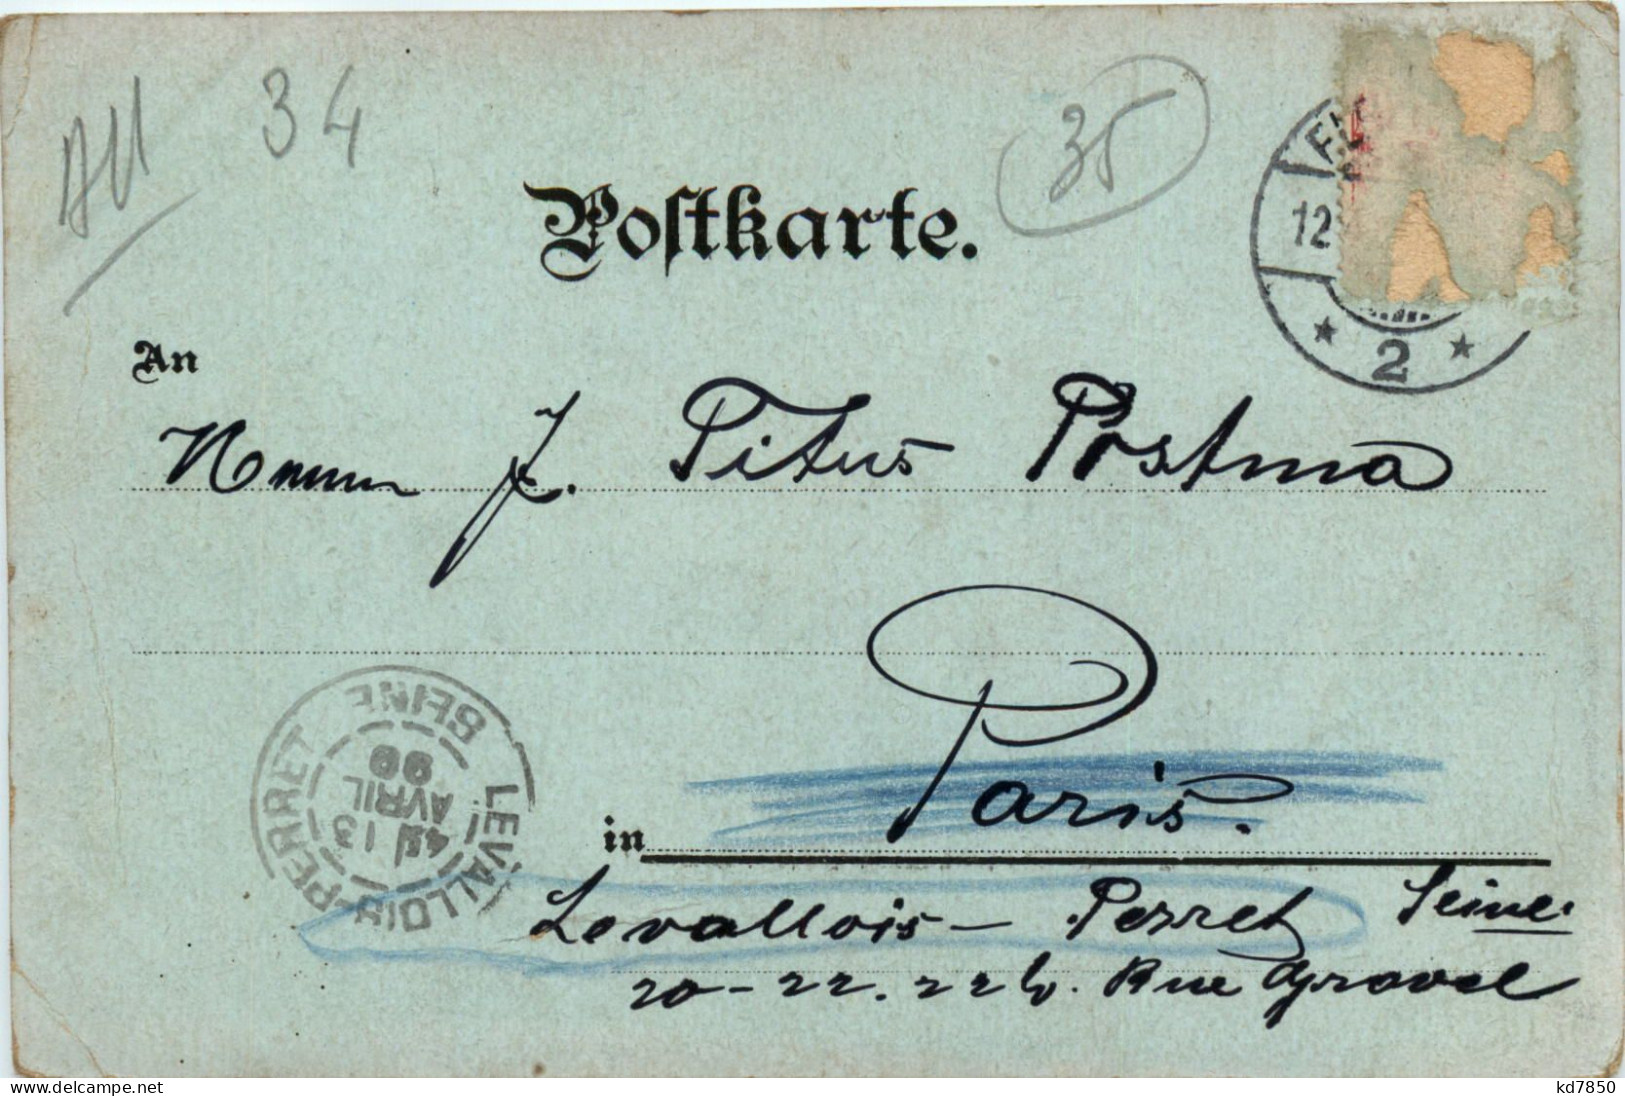 AU 34
35
Postkarte.
12
2
An
Herrn J. Titus Postma
in Paris.
LEVALLOIS-PERRET SEINE
13
AVRIL
99
Levallois - Perret Seine
20-22. 22b. Rue Gravel
www.delcampe.net
kd7850